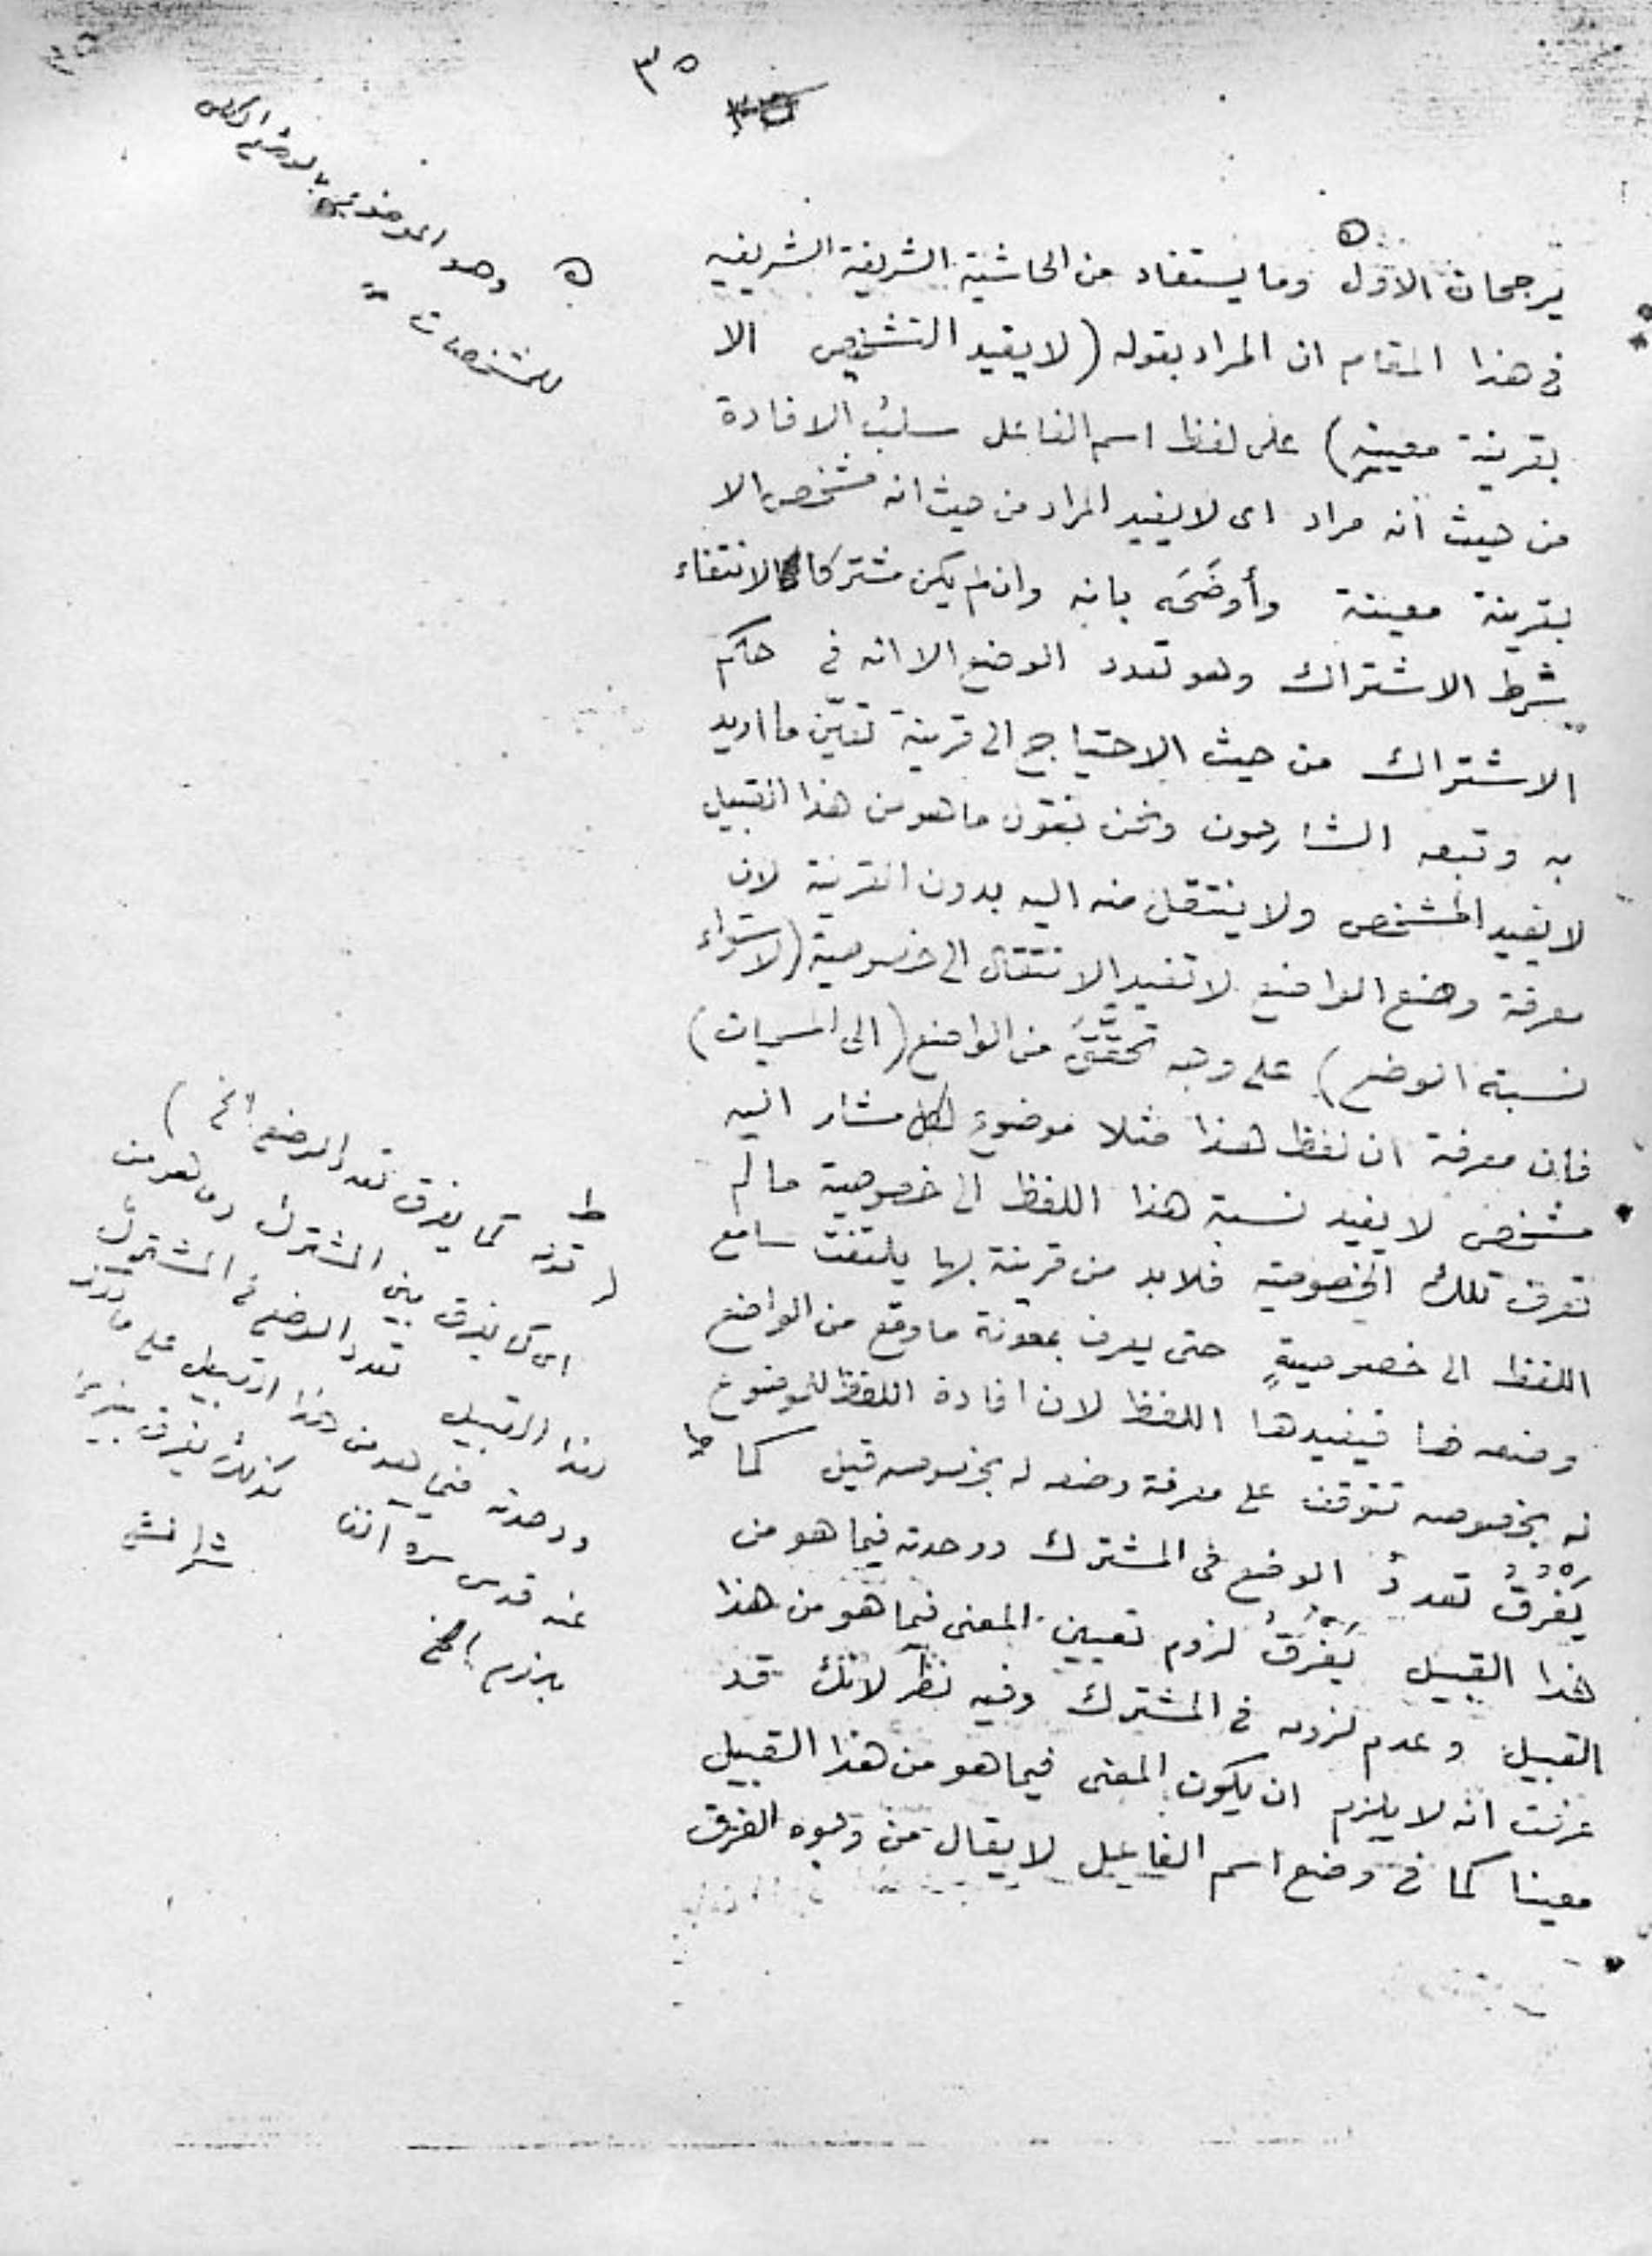 ٣٥
يرجحان الاول وما يستفاد من الحاشية الشريفة الشريفيه
فى هذا المقام ان المراد بقوله (لا يفيد التشخيص الا
بقرينة معينة) على لفظ اسم الفاعل سلب الافادة
من حيث أنه مراد اى لا يفيد المراد من حيث انه مشخص الا
بقرينة معينة وأوضَحَه بانه وان لم يكن مشتركا لانتفاء
شرط الاشتراك وهو تعدد الوضع الا انه فى حكم
الاشتراك من حيث الاحتياج الى قرينة تعيّن ما اريد
به وتبعه الشارحون ونحن نقول ما هو من هذا القبيل
لا يفيد المشخص ولا ينتقل منه اليه بدون القرينة لان
معرفة وضع الواضع لا تفيد الانتقال الى خصوصية (لاستواء
نسبة الوضع) على وجه تحقّق من الواضع (الى المسميات)
فان معرفة ان لفظ هذا مثلا موضوع لكل مشار اليه
مشخص لا يفيد نسبة هذا اللفظ الى خصوصية ما لم
تعرف تلك الخصوصية فلا بد من قرينة بها يلتفت سامع
اللفظ الى خصوصيةٍ حتى يعرف بمعونة ما وقع من الواضع
وضعه لها فيفيدها اللفظ لان افادة اللفظ للموضوع
له بخصوصه تتوقف على معرفة وضعه له بخصوصه قيل كما ط
يَفرُقُ تعددُ الوضع فى المشترك ووحدته فيما هو من
هذا القبيل يَفْرُقُ لزوم تعيين المعنى فيما هو من هذا
القبيل وعدم لزومه فى المشترك وفيه نظر لانك قد
عرفت انه لا يلزم ان يكون المعنى فيما هو من هذا القبيل
معينا كما فى وضع اسم الفاعل لا يقال من وجوه الفرق
ه وهو الموضوع بالوضع
للمشخصات
ط
(قوله كما يفرق تعدد الوضع الخ)
اى كما يفرق بين المشترك وما هو من
هذا القبيل تعدد الوضع فى المشترك
ووحدته فيما هو من هذا القبيل على ما
عنه قدس سره آنفا كذلك يفرق
بلزوم الخ